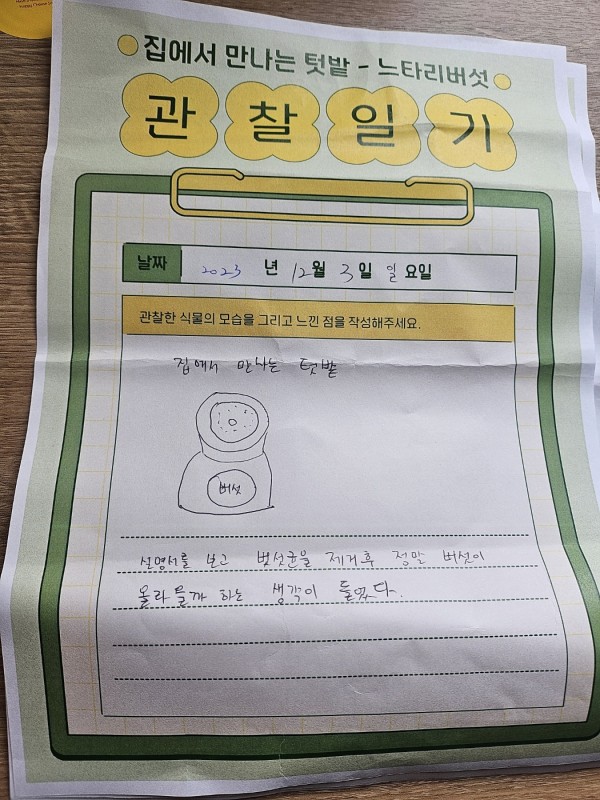 집에서 만나는 텃밭 - 느타리버섯
관찰일기
날짜 2023 년 12월 3일 일요일
관찰한 식물의 모습을 그리고 느낀 점을 작성해주세요.
집에서 만나는 텃밭
버섯
설명서를 보고 버섯균을 제거후 정말 버섯이
올라올까 하는 생각이 들었다.